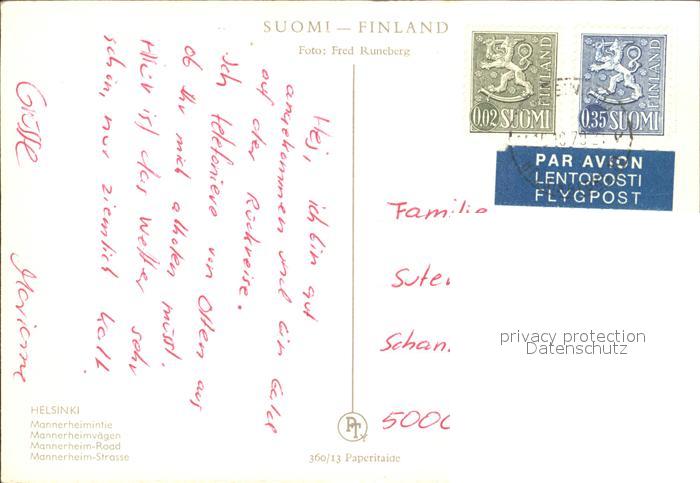 SUOMI — FINLAND
Foto: Fred Runeberg
Hej, ich bin gut
angekommen und bin bald
auf der Rückreise.
Ich telefoniere von Olten aus
ob Ihr mich abholen müsst.
Hier ist das Wetter sehr
schön, nur ziemlich kalt.
Grüsse
Marianne
HELSINKI
Mannerheimintie
Mannerheimvägen
Mannerheim-Road
Mannerheim-Strasse
PT
360/13 Paperitaide
0.02 SUOMI
FINLAND
0.35 SUOMI
FINLAND
PAR AVION
LENTOPOSTI
FLYGPOST
Familie
Suter
Schan
5000
privacy protection
Datenschutz